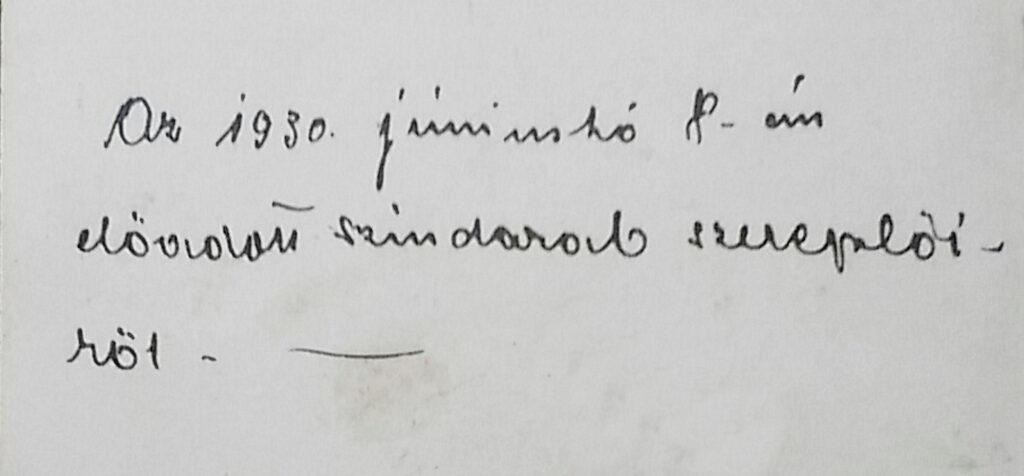 Az 1930. júniushó 8-án
előadott színdarab szereplői-
ről -